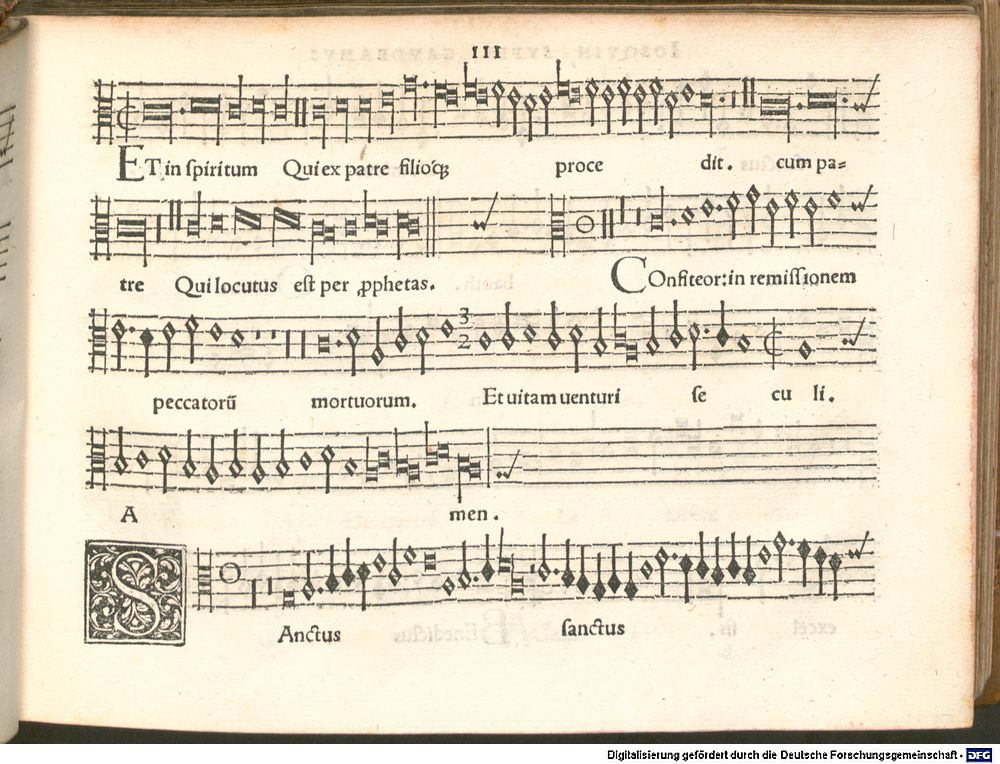 III
ET in spiritum Qui ex patre filioq́ꝫ proce dit. cum pa=
tre Qui locutus est per ꝓphetas. COnfiteor: in remissionem
peccatorū mortuorum. Et uitam uenturi se cu li.
A men.
SAnctus sanctus
Digitalisierung gefördert durch die Deutsche Forschungsgemeinschaft - DFG